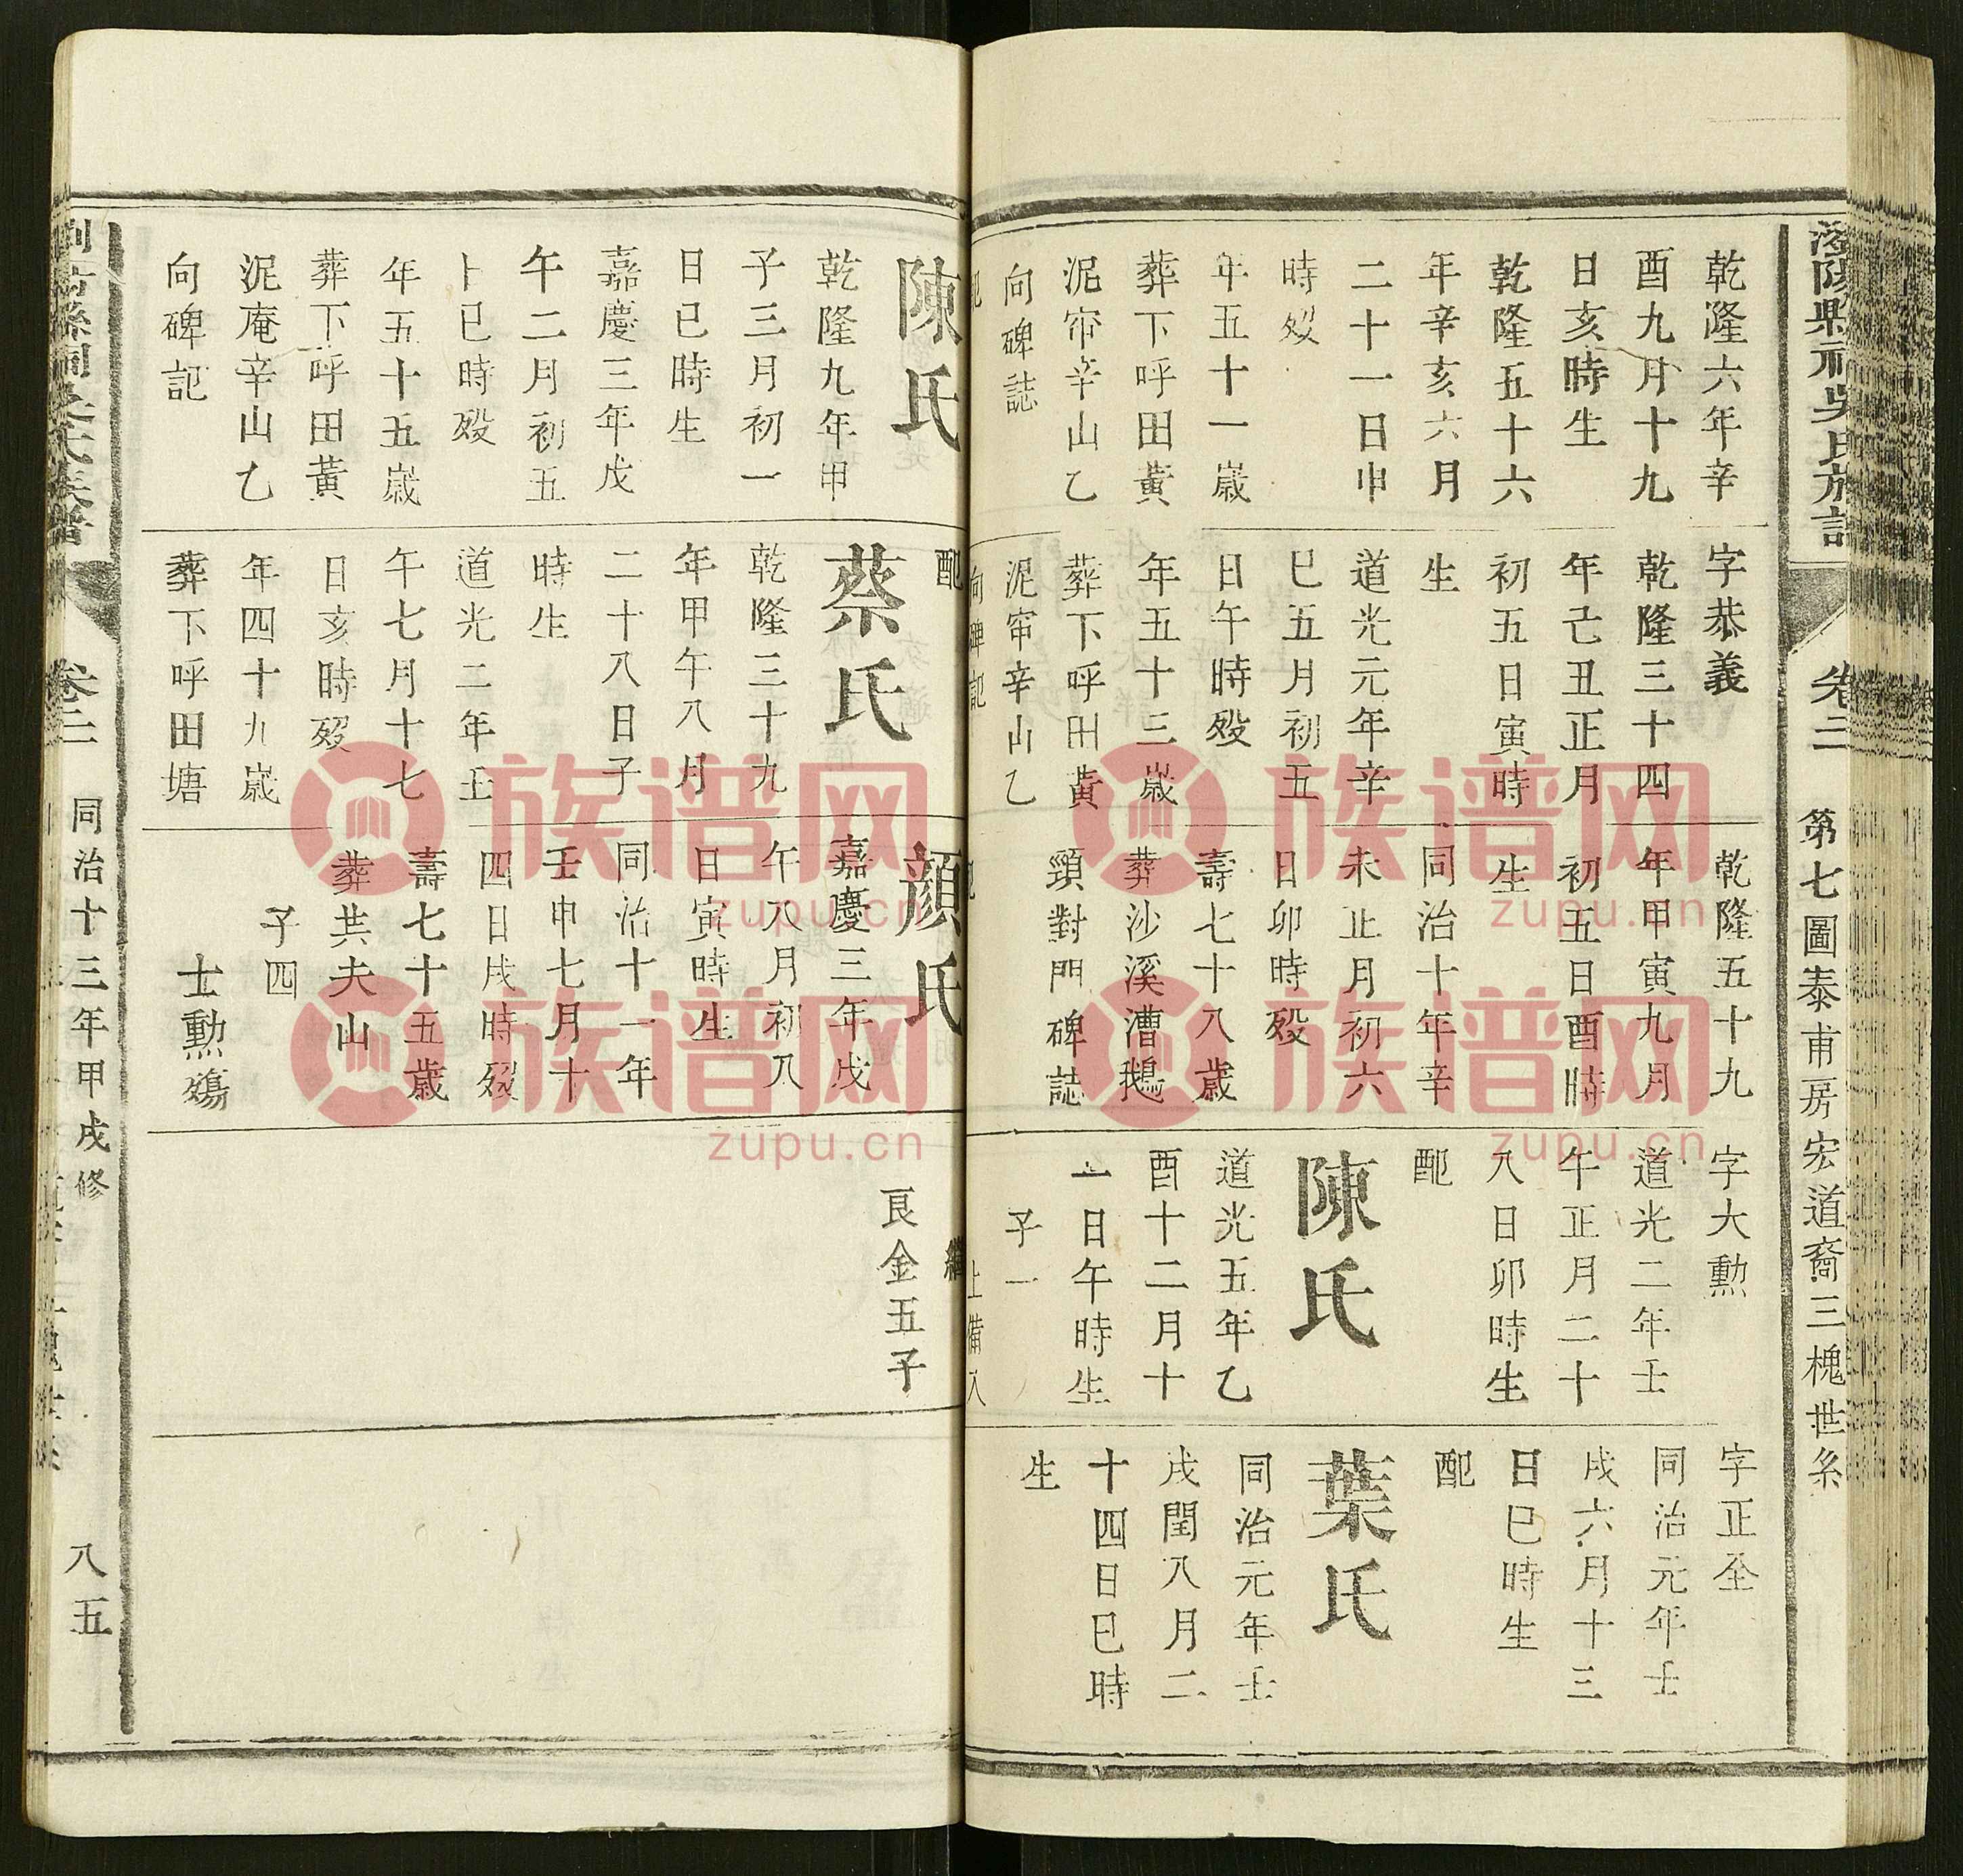 卷二
第七圖泰甫房宏道裔三槐世系
乾隆六年辛
酉九月十九
日亥時生
乾隆五十六
年辛亥六月
二十一日申
時歿
年五十一歲
葬下呼田黃
泥帘辛山乙
向碑誌
字恭義
乾隆三十四
年己丑正月
初五日寅時
生
道光元年辛
巳五月初五
日午時歿
年五十三歲
葬下呼田黃
泥帘辛山乙
向碑記
乾隆五十九
年甲寅九月
初五日酉時
生
同治十年辛
未正月初六
日卯時歿
壽七十八歲
葬沙溪漕鵝
頸對門碑誌
字大勳
道光二年壬
午正月二十
八日卯時生
配
陳氏
道光五年乙
酉十二月十
一日午時生
子一
字正全
同治元年壬
戌六月十三
日巳時生
配
葉氏
同治元年壬
戌閏八月二
十四日巳時
生
陳氏
乾隆九年甲
子三月初一
日巳時生
嘉慶三年戊
午二月初五
卜巳時歿
年五十五歲
葬下呼田黃
泥庵辛山乙
向碑記
配
蔡氏
乾隆三十九
年甲午八月
二十八日子
時生
道光二年壬
午七月十七
日亥時歿
年四十九歲
葬下呼田塘
顏氏
嘉慶三年戊
午八月初八
日寅時生
同治十一年
壬申七月十
四日戌時歿
壽七十五歲
葬共夫山
子四
士勳殤
繼
良金五子
卷二
同治十三年甲戌修
八五
族谱网
zupu.cn
族谱网
zupu.cn
族谱网
zupu.cn
族谱网
zupu.cn